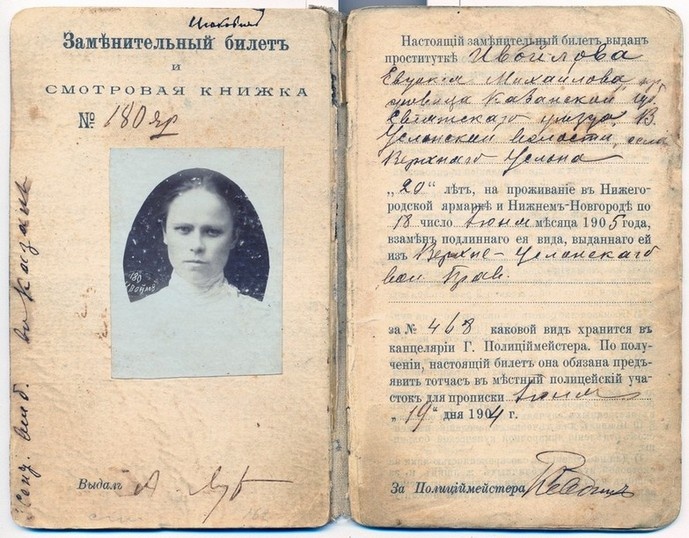 Замѣнительный билетъ
и
СМОТРОВАЯ КНИЖКА
№ 180 яр
180
Выдалъ
Настоящій замѣнительный билетъ выданъ
проституткѣ Ивойлова
Евдокія Михайлова
Казанской губ.
уѣзда, В.
Услонской волости, села
Верхняго Услона
„20“ лѣтъ, на проживаніе въ Нижего-
родской ярмаркѣ и Нижнемъ-Новгородѣ по
18 число Іюня мѣсяца 1905 года,
взамѣнъ подлиннаго ея вида, выданнаго ей
изъ Верхне-Услонскаго
вол. Прав.
за № 468 каковой видъ хранится въ
канцеляріи Г. Полиційместера. По полу-
ченіи, настоящій билетъ она обязана предъ-
явить тотчасъ въ мѣстный полицейскій уча-
стокъ для прописки Іюня
„19“ дня 1904 г.
За Полиційместера